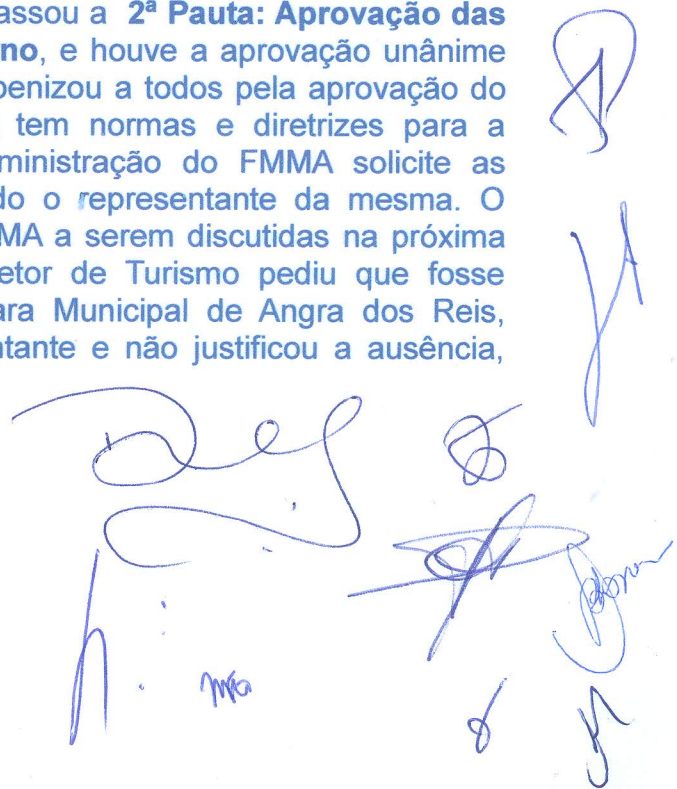 assou a 2ª Pauta: Aprovação das
no, e houve a aprovação unânime
benizou a todos pela aprovação do
tem normas e diretrizes para a
ministração do FMMA solicite as
do o representante da mesma. O
MA a serem discutidas na próxima
etor de Turismo pediu que fosse
ara Municipal de Angra dos Reis,
ntante e não justificou a ausência,